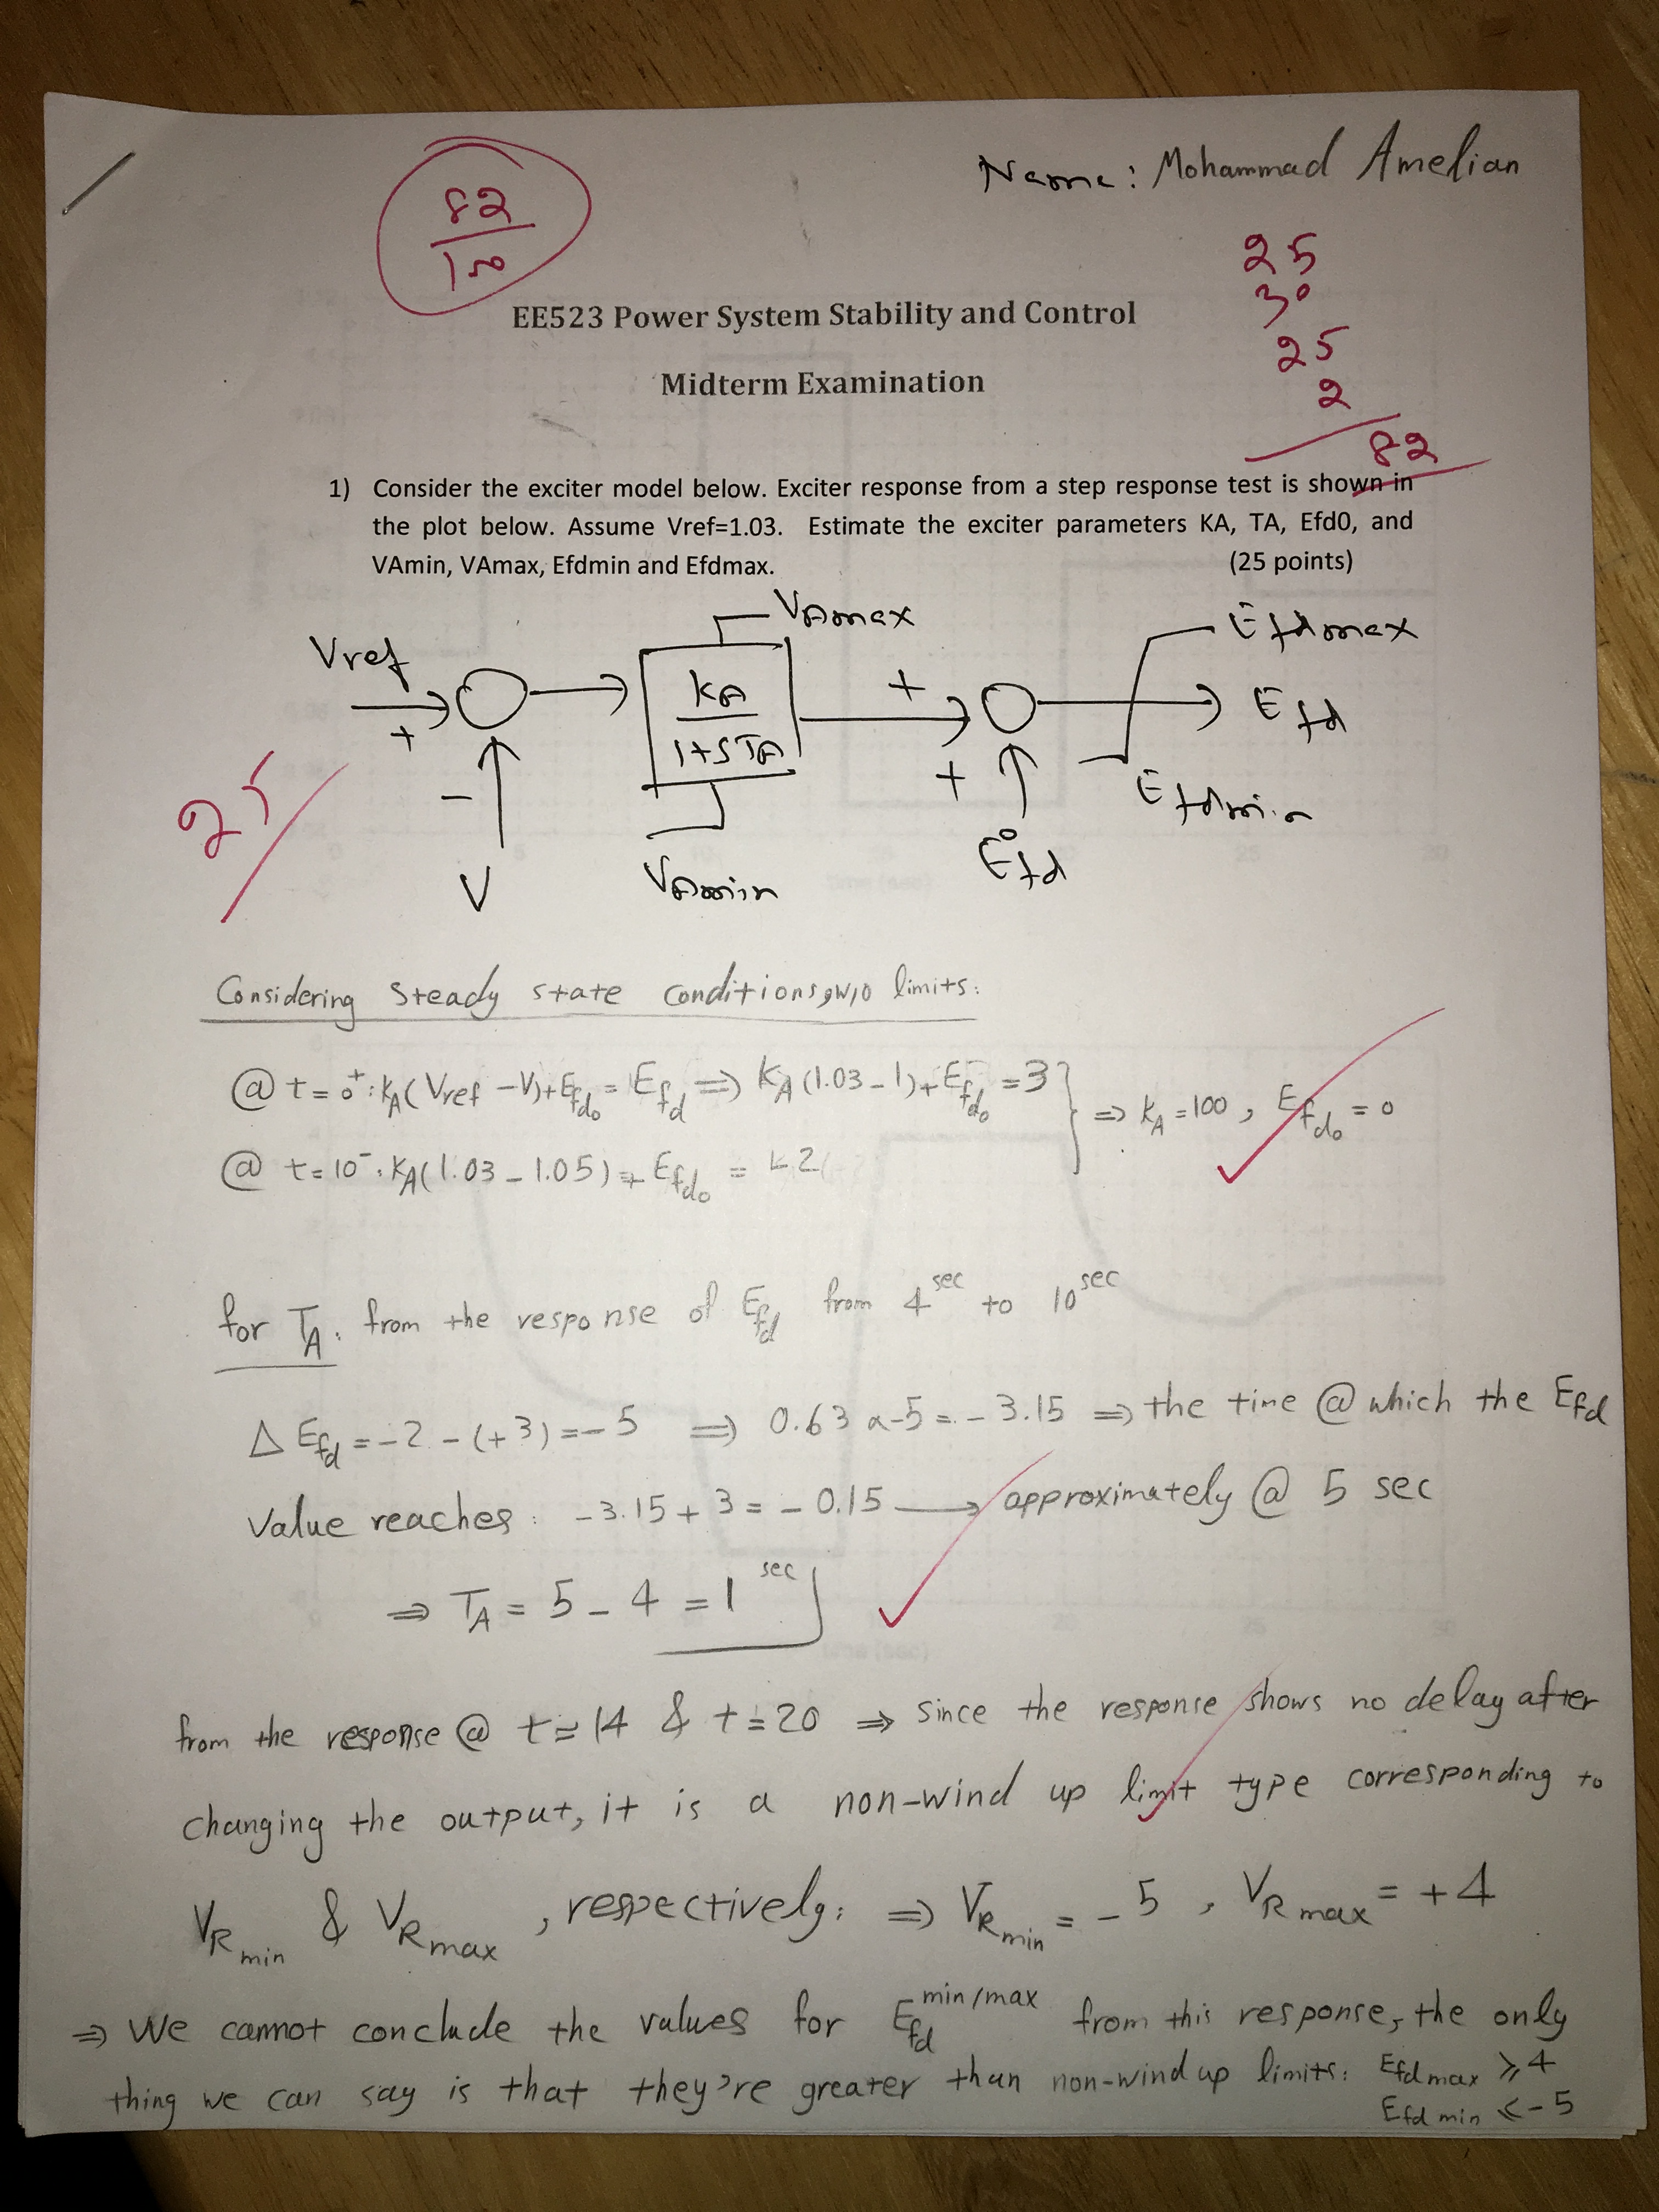 Name: Mohammad Amelian
82
100
25
30
25
2
82
EE523 Power System Stability and Control
Midterm Examination
1) Consider the exciter model below. Exciter response from a step response test is shown in
the plot below. Assume Vref=1.03. Estimate the exciter parameters KA, TA, Efd0, and
VAmin, VAmax, Efdmin and Efdmax. (25 points)
VAmax
Efdmax
Vref
+
KA
1+STA
+
Efd
-
+
Efdmin
V
VAmin
E°fd
25
Considering Steady state conditions, w/o limits:
@ t = 0⁺: KA(Vref - V) + Efd0 = Efd ⇒ KA(1.03 - 1) + Efd0 = 3
@ t = 10⁻: KA(1.03 - 1.05) + Efd0 = -2
⇒ KA = 100, Efd0 = 0
for TA: from the response of Efd from 4 sec to 10 sec
Δ Efd = -2 - (+3) = -5 ⇒ 0.63 x -5 = -3.15 ⇒ the time @ which the Efd
Value reaches: -3.15 + 3 = -0.15 → approximately @ 5 sec
⇒ TA = 5 - 4 = 1 sec
from the response @ t = 14 & t = 20 ⇒ since the response shows no delay after
changing the output, it is a non-wind up limit type corresponding to
VRmin & VRmax, respectively: ⇒ VRmin = -5, VRmax = +4
⇒ We cannot conclude the values for Efd min/max from this response, the only
thing we can say is that they're greater than non-wind up limits: Efdmax ⩾ 4
Efdmin ⩽ -5